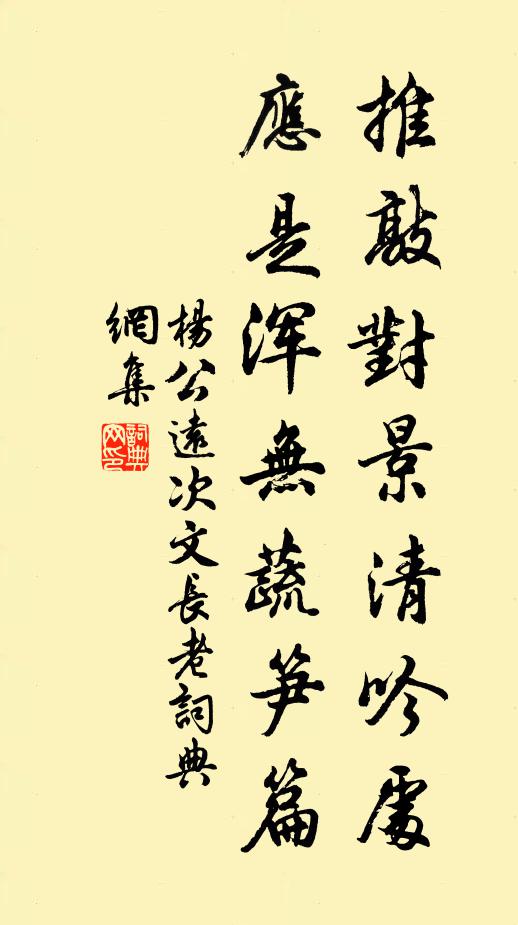 推敲對景清吟處
應是渾無蔬笋篇
楊公遠次文長老詞典
網集
詞典
网印